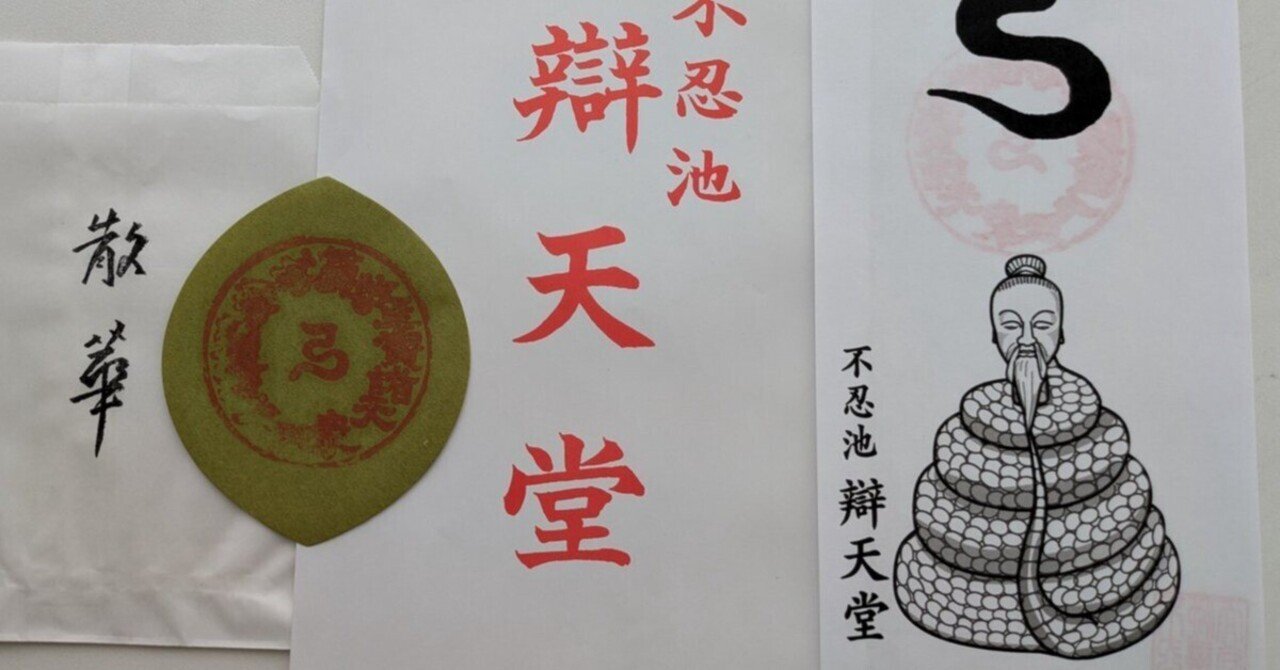 散華
不忍池
辯天堂
不忍池 辯天堂